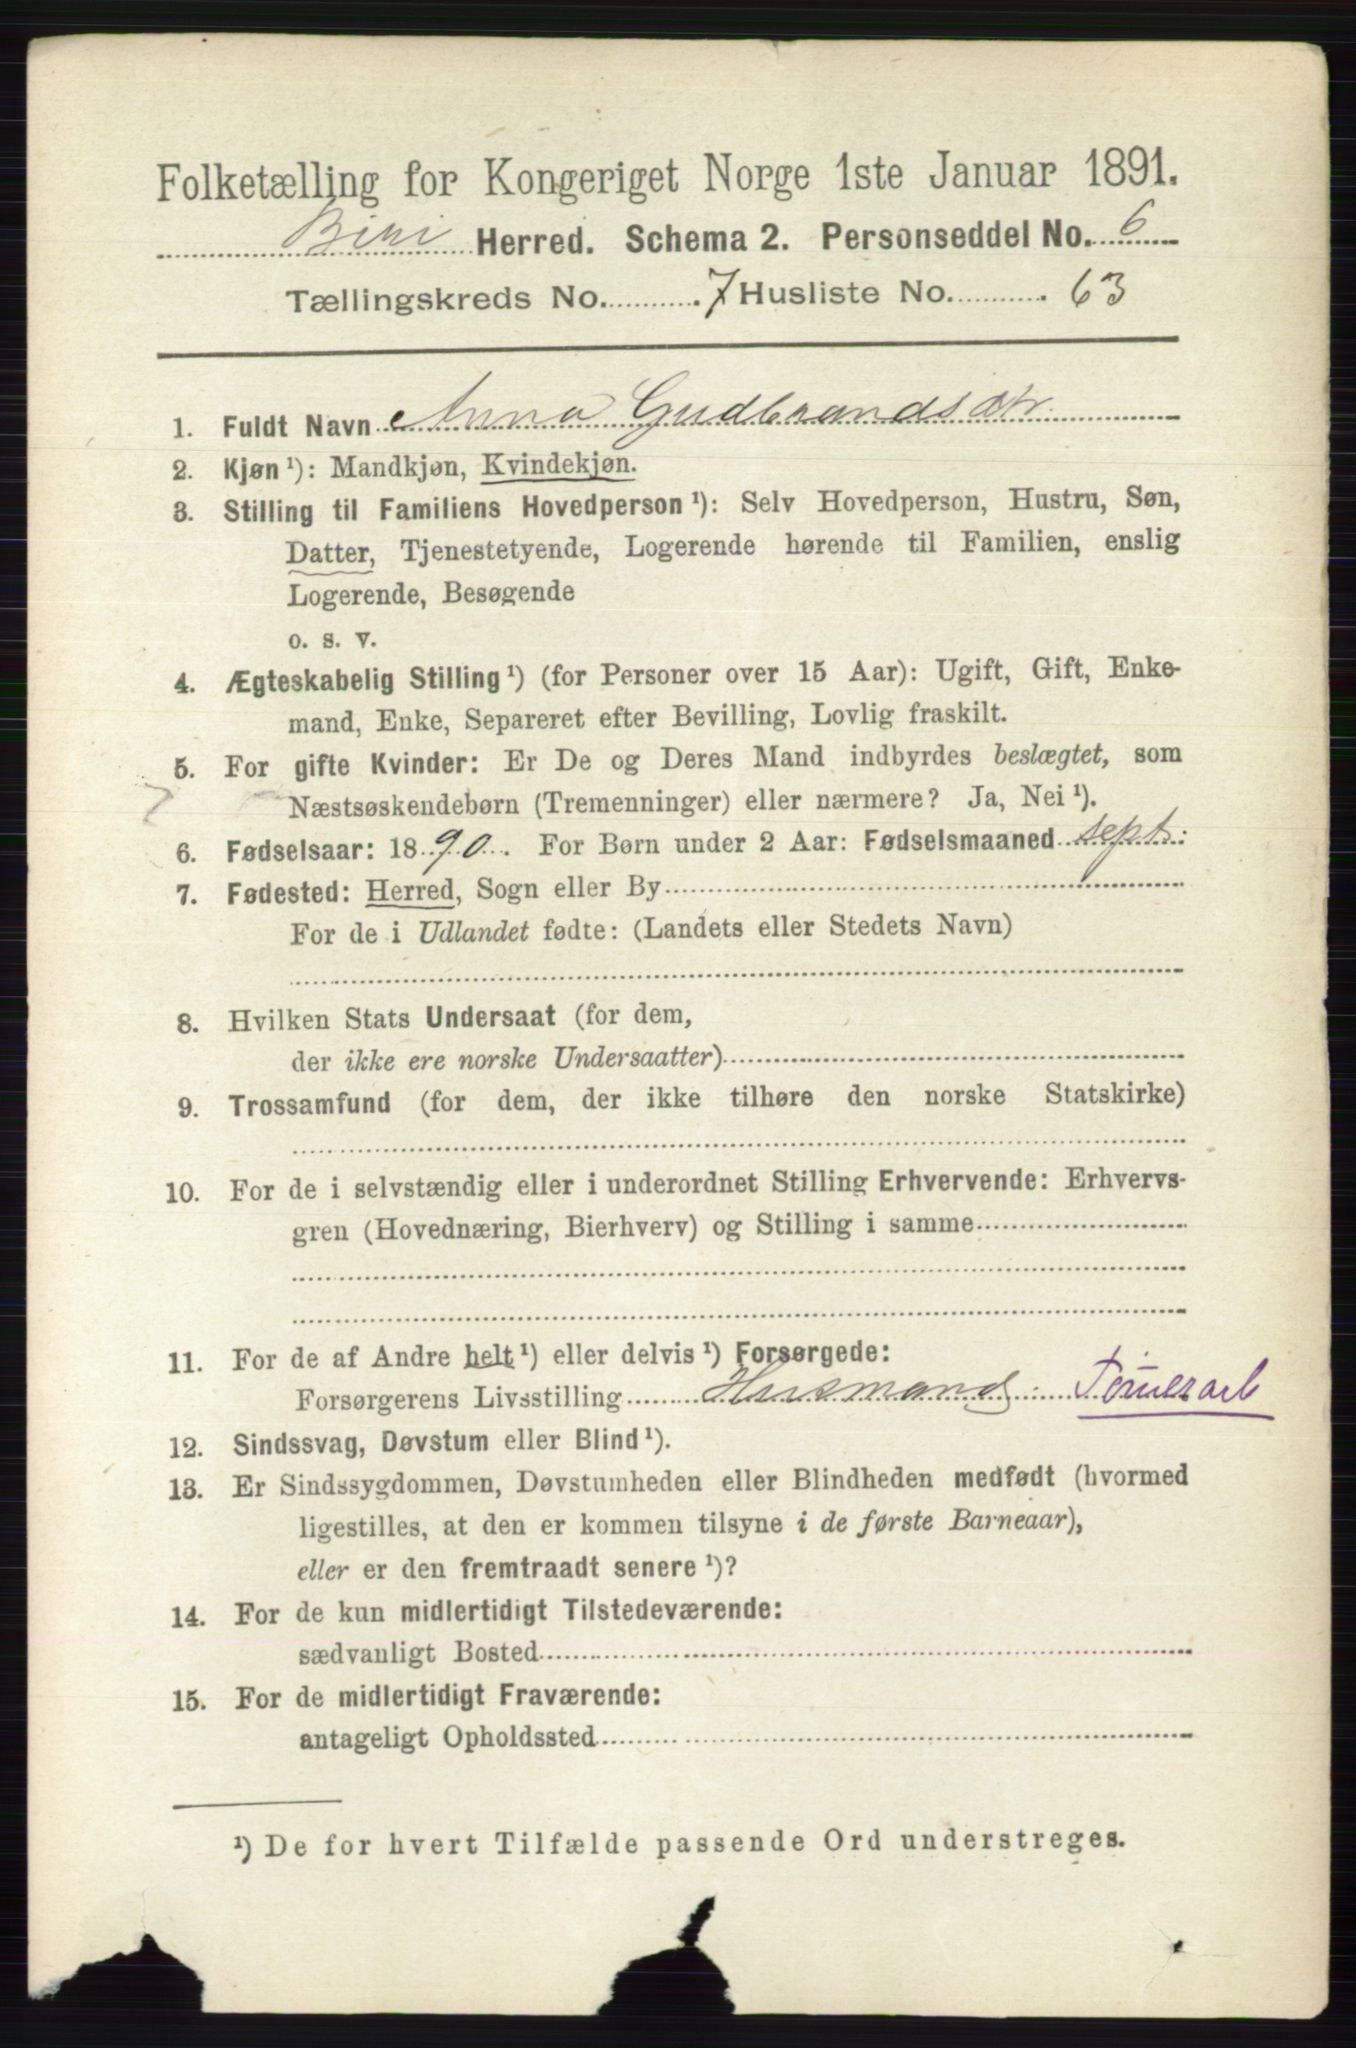 Folketælling for Kongeriget Norge 1ste Januar 1891.
Biri Herred. Schema 2. Personseddel No. 6
Tællingskreds No. 7 Husliste No. 63
1. Fuldt Navn Anna Gudbrandsdtr.
2. Kjøn ¹): Mandkjøn, Kvindekjøn.
3. Stilling til Familiens Hovedperson ¹): Selv Hovedperson, Hustru, Søn,
Datter, Tjenestetyende, Logerende hørende til Familien, enslig
Logerende, Besøgende
o. s. v.
4. Ægteskabelig Stilling ¹) (for Personer over 15 Aar): Ugift, Gift, Enke-
mand, Enke, Separeret efter Bevilling, Lovlig fraskilt.
5. For gifte Kvinder: Er De og Deres Mand indbyrdes beslægtet, som
Næstsøskendebørn (Tremenninger) eller nærmere? Ja, Nei ¹).
6. Fødselsaar: 1890. For Børn under 2 Aar: Fødselsmaaned sept:
7. Fødested: Herred, Sogn eller By
For de i Udlandet fødte: (Landets eller Stedets Navn)
8. Hvilken Stats Undersaat (for dem,
der ikke ere norske Undersaatter)
9. Trossamfund (for dem, der ikke tilhøre den norske Statskirke)
10. For de i selvstændig eller i underordnet Stilling Erhvervende: Erhvervs-
gren (Hovednæring, Bierhverv) og Stilling i samme
11. For de af Andre helt ¹) eller delvis ¹) Forsørgede:
Forsørgerens Livsstilling Husmand.
12. Sindssvag, Døvstum eller Blind ¹).
13. Er Sindssygdommen, Døvstumheden eller Blindheden medfødt (hvormed
ligestilles, at den er kommen tilsyne i de første Barneaar),
eller er den fremtraadt senere ¹)?
14. For de kun midlertidigt Tilstedeværende:
sædvanligt Bosted
15. For de midlertidigt Fraværende:
antageligt Opholdssted
¹) De for hvert Tilfælde passende Ord understreges.